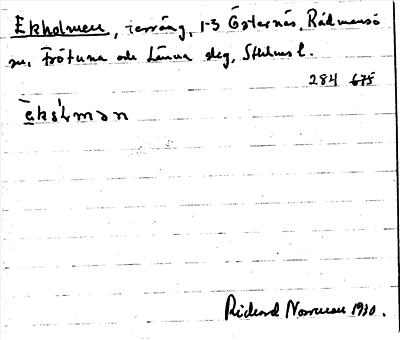 Ekholmen, terräng, 1-3 Östernäs, Rådmansö
sn, Frötuna och Länna skg, Sthlms l.
284 675
Richard Norrman 1930.